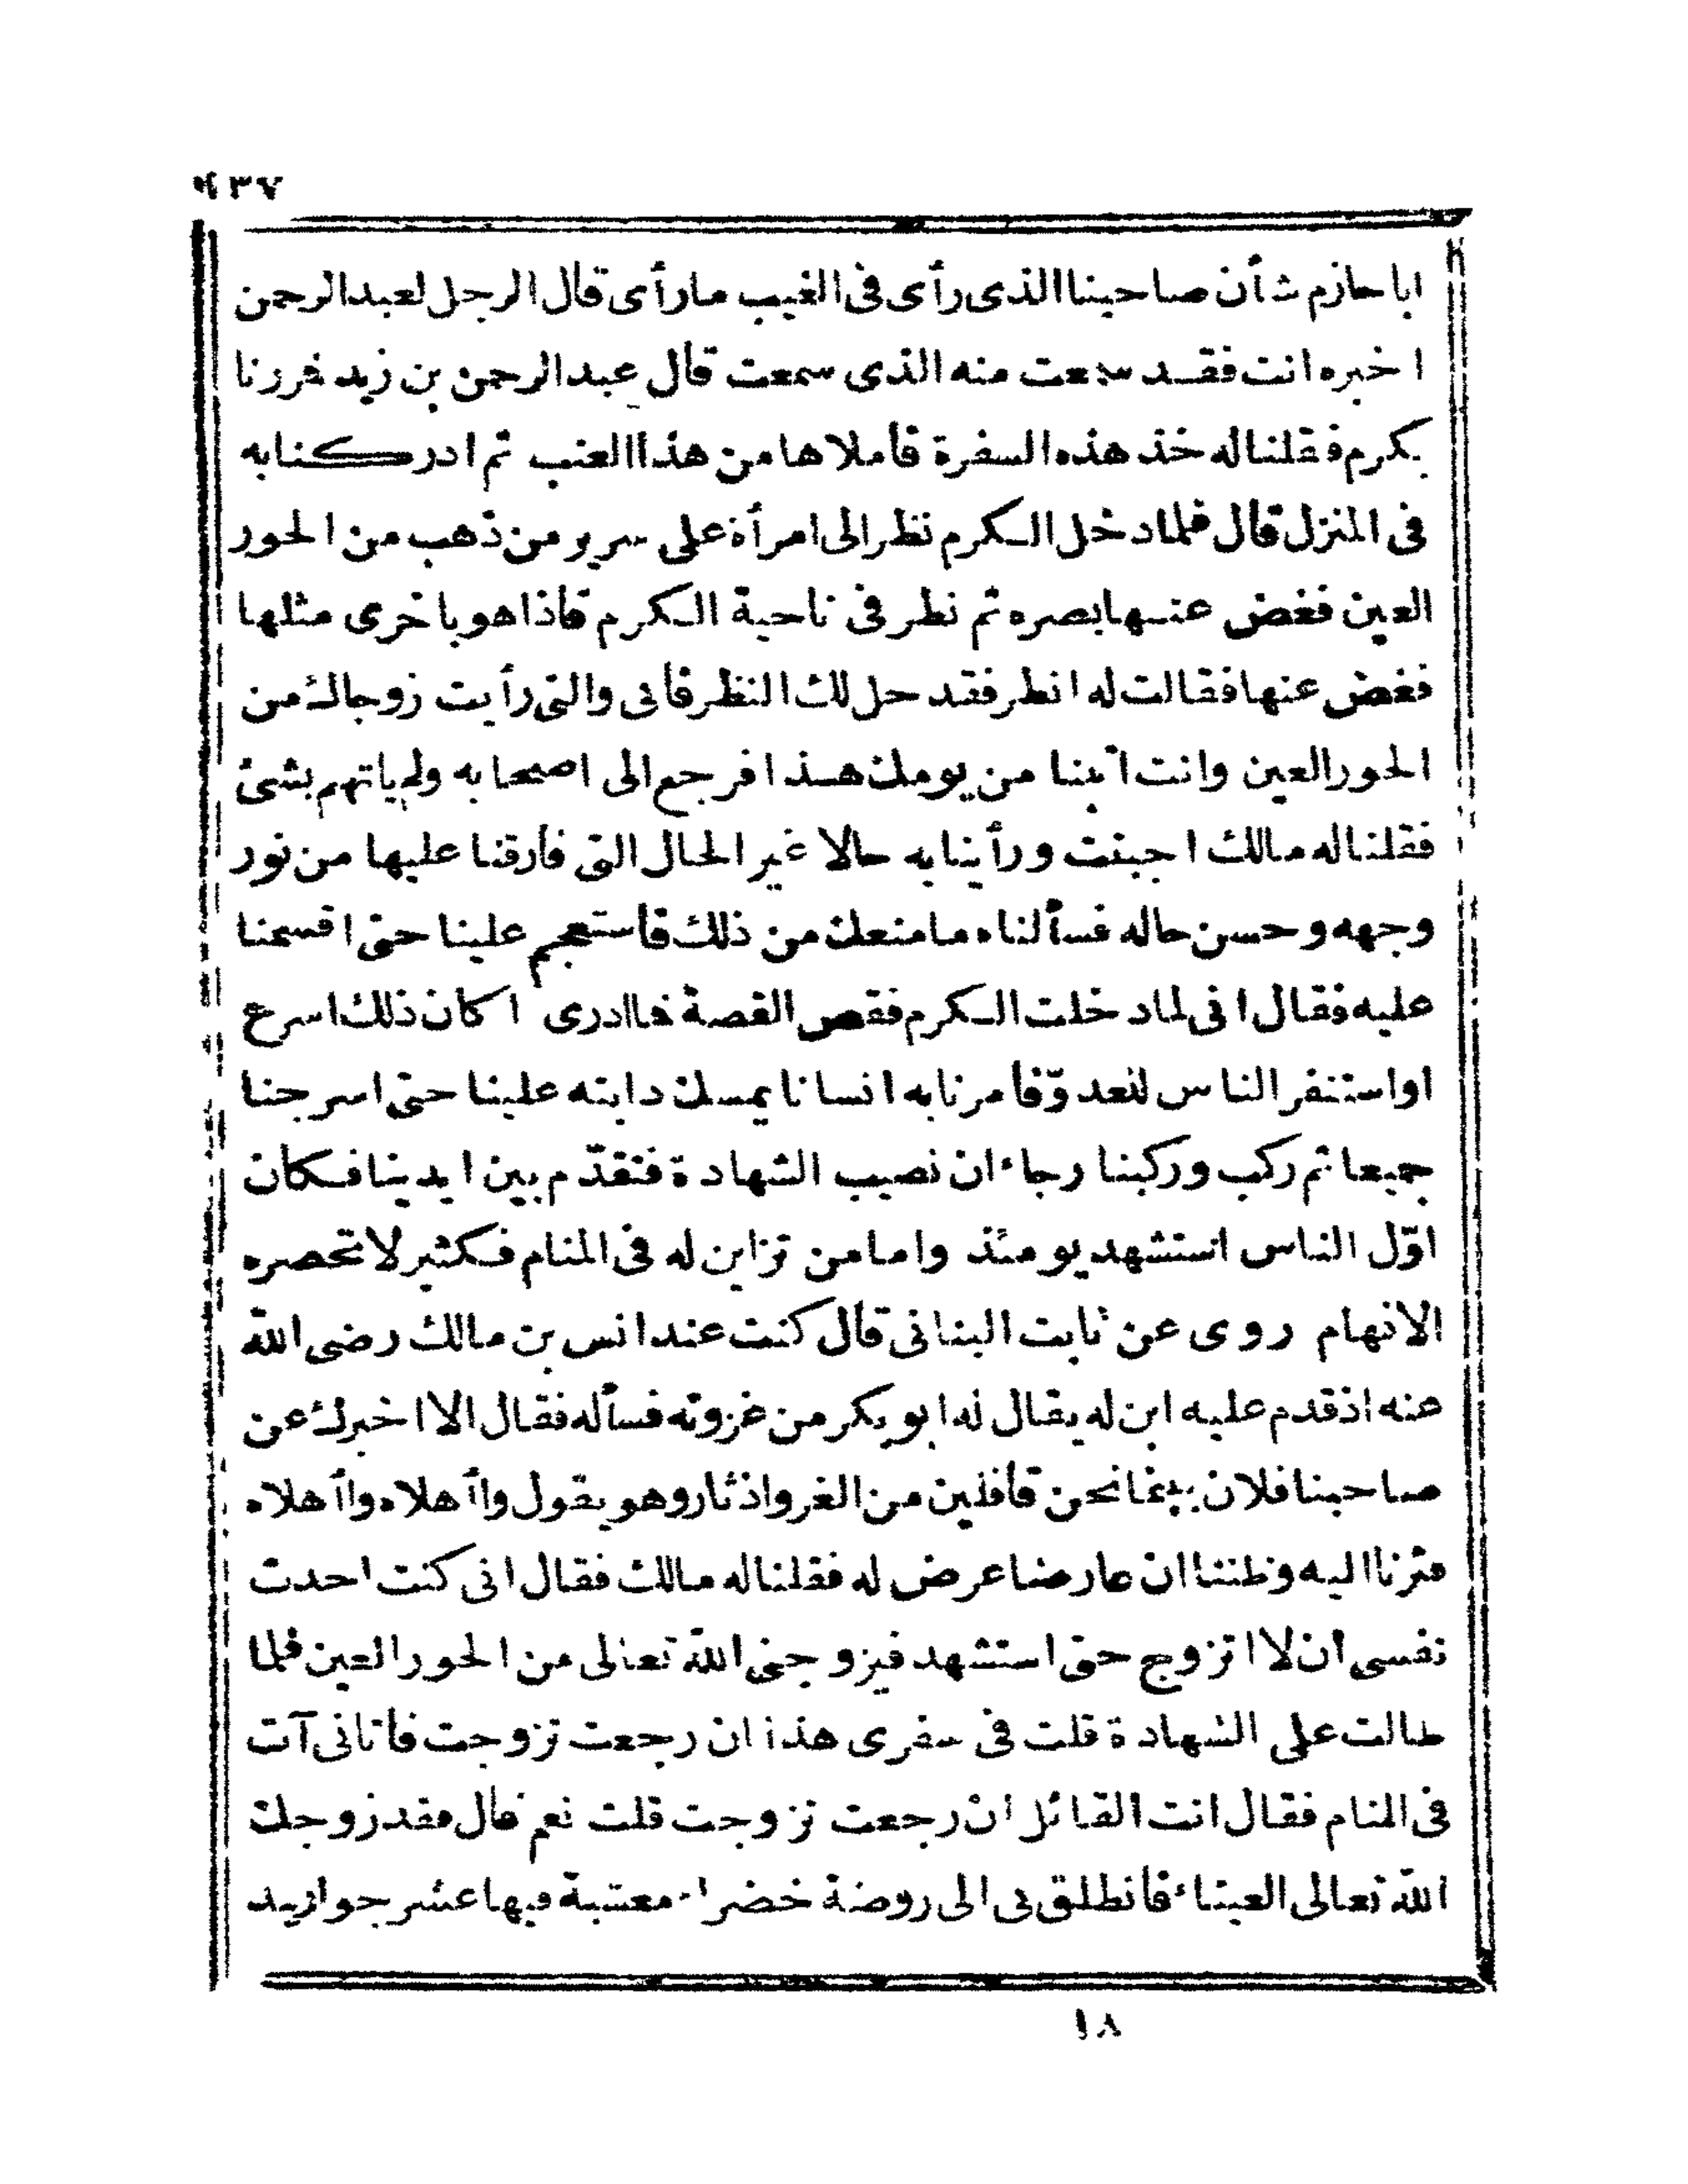 ١٣٧
ابا حازم شأن صاحبنا الذى رأى فى الغيب ما رأى قال الرجل لعبد الرحمن
اخبره انت فقد سمعت منه الذى سمعت قال عبد الرحمن بن زيد فررنا
بكرم فقلنا له خذ هذه السفرة فأملاها من هذا العنب ثم ادركنا به
فى المنزل قال فلما دخل الكرم نظر الى امرأة على سرير من ذهب من الحور
العين فغض عنها بصره ثم نظر فى ناحية الكرم فاذا هو باخرى مثلها
فغض عنها فقالت له انظر فقد حل لك النظر فانى والتى رأيت زوجاك من
الحور العين وانت آتينا من يومك هذا فرجع الى اصحابه ولم ياتهم بشئ
فقلنا له مالك اجننت ورأينا به حالا غير الحال التى فارقنا عليها من نور
وجهه وحسن حاله فسألناه ما منعك من ذلك فاستعجم علينا حتى اقسمنا
عليه فقال انى لما دخلت الكرم فقص القصة فما ادرى اكان ذلك اسرع
او استنفر الناس للعدوّ فأمرنا به انسانا يمسك دابته علينا حتى اسرجنا
جميعا ثم ركب وركبنا رجاء ان نصيب الشهادة فتقدّم بين ايدينا فكان
اوّل الناس استشهد يومئذ واما من تزاين له فى المنام فكثير لا تحصره
الافهام روى عن ثابت البنانى قال كنت عند انس بن مالك رضى الله
عنه اذ قدم عليه ابن له يقال له ابو بكر من غزوته فسأله فقال الا اخبرك عن
صاحبنا فلان بينما نحن قافلين من الغزو اذ ثار وهو يقول وا أهلاه وا أهلاه
فثرنا اليه وظننا ان عارضا عرض له فقلنا له مالك فقال انى كنت احدث
نفسى ان لا اتزوج حتى استشهد فيزوجنى الله تعالى من الحور العين فلما
طالت على الشهادة قلت فى سفرى هذا ان رجعت تزوجت فأتانى آت
فى المنام فقال انت القائل ان رجعت تزوجت قلت نعم قال فقد زوجك
الله تعالى العيناء فانطلق بى الى روضة خضراء معشبة فيها عشر جوار بيد
١٨